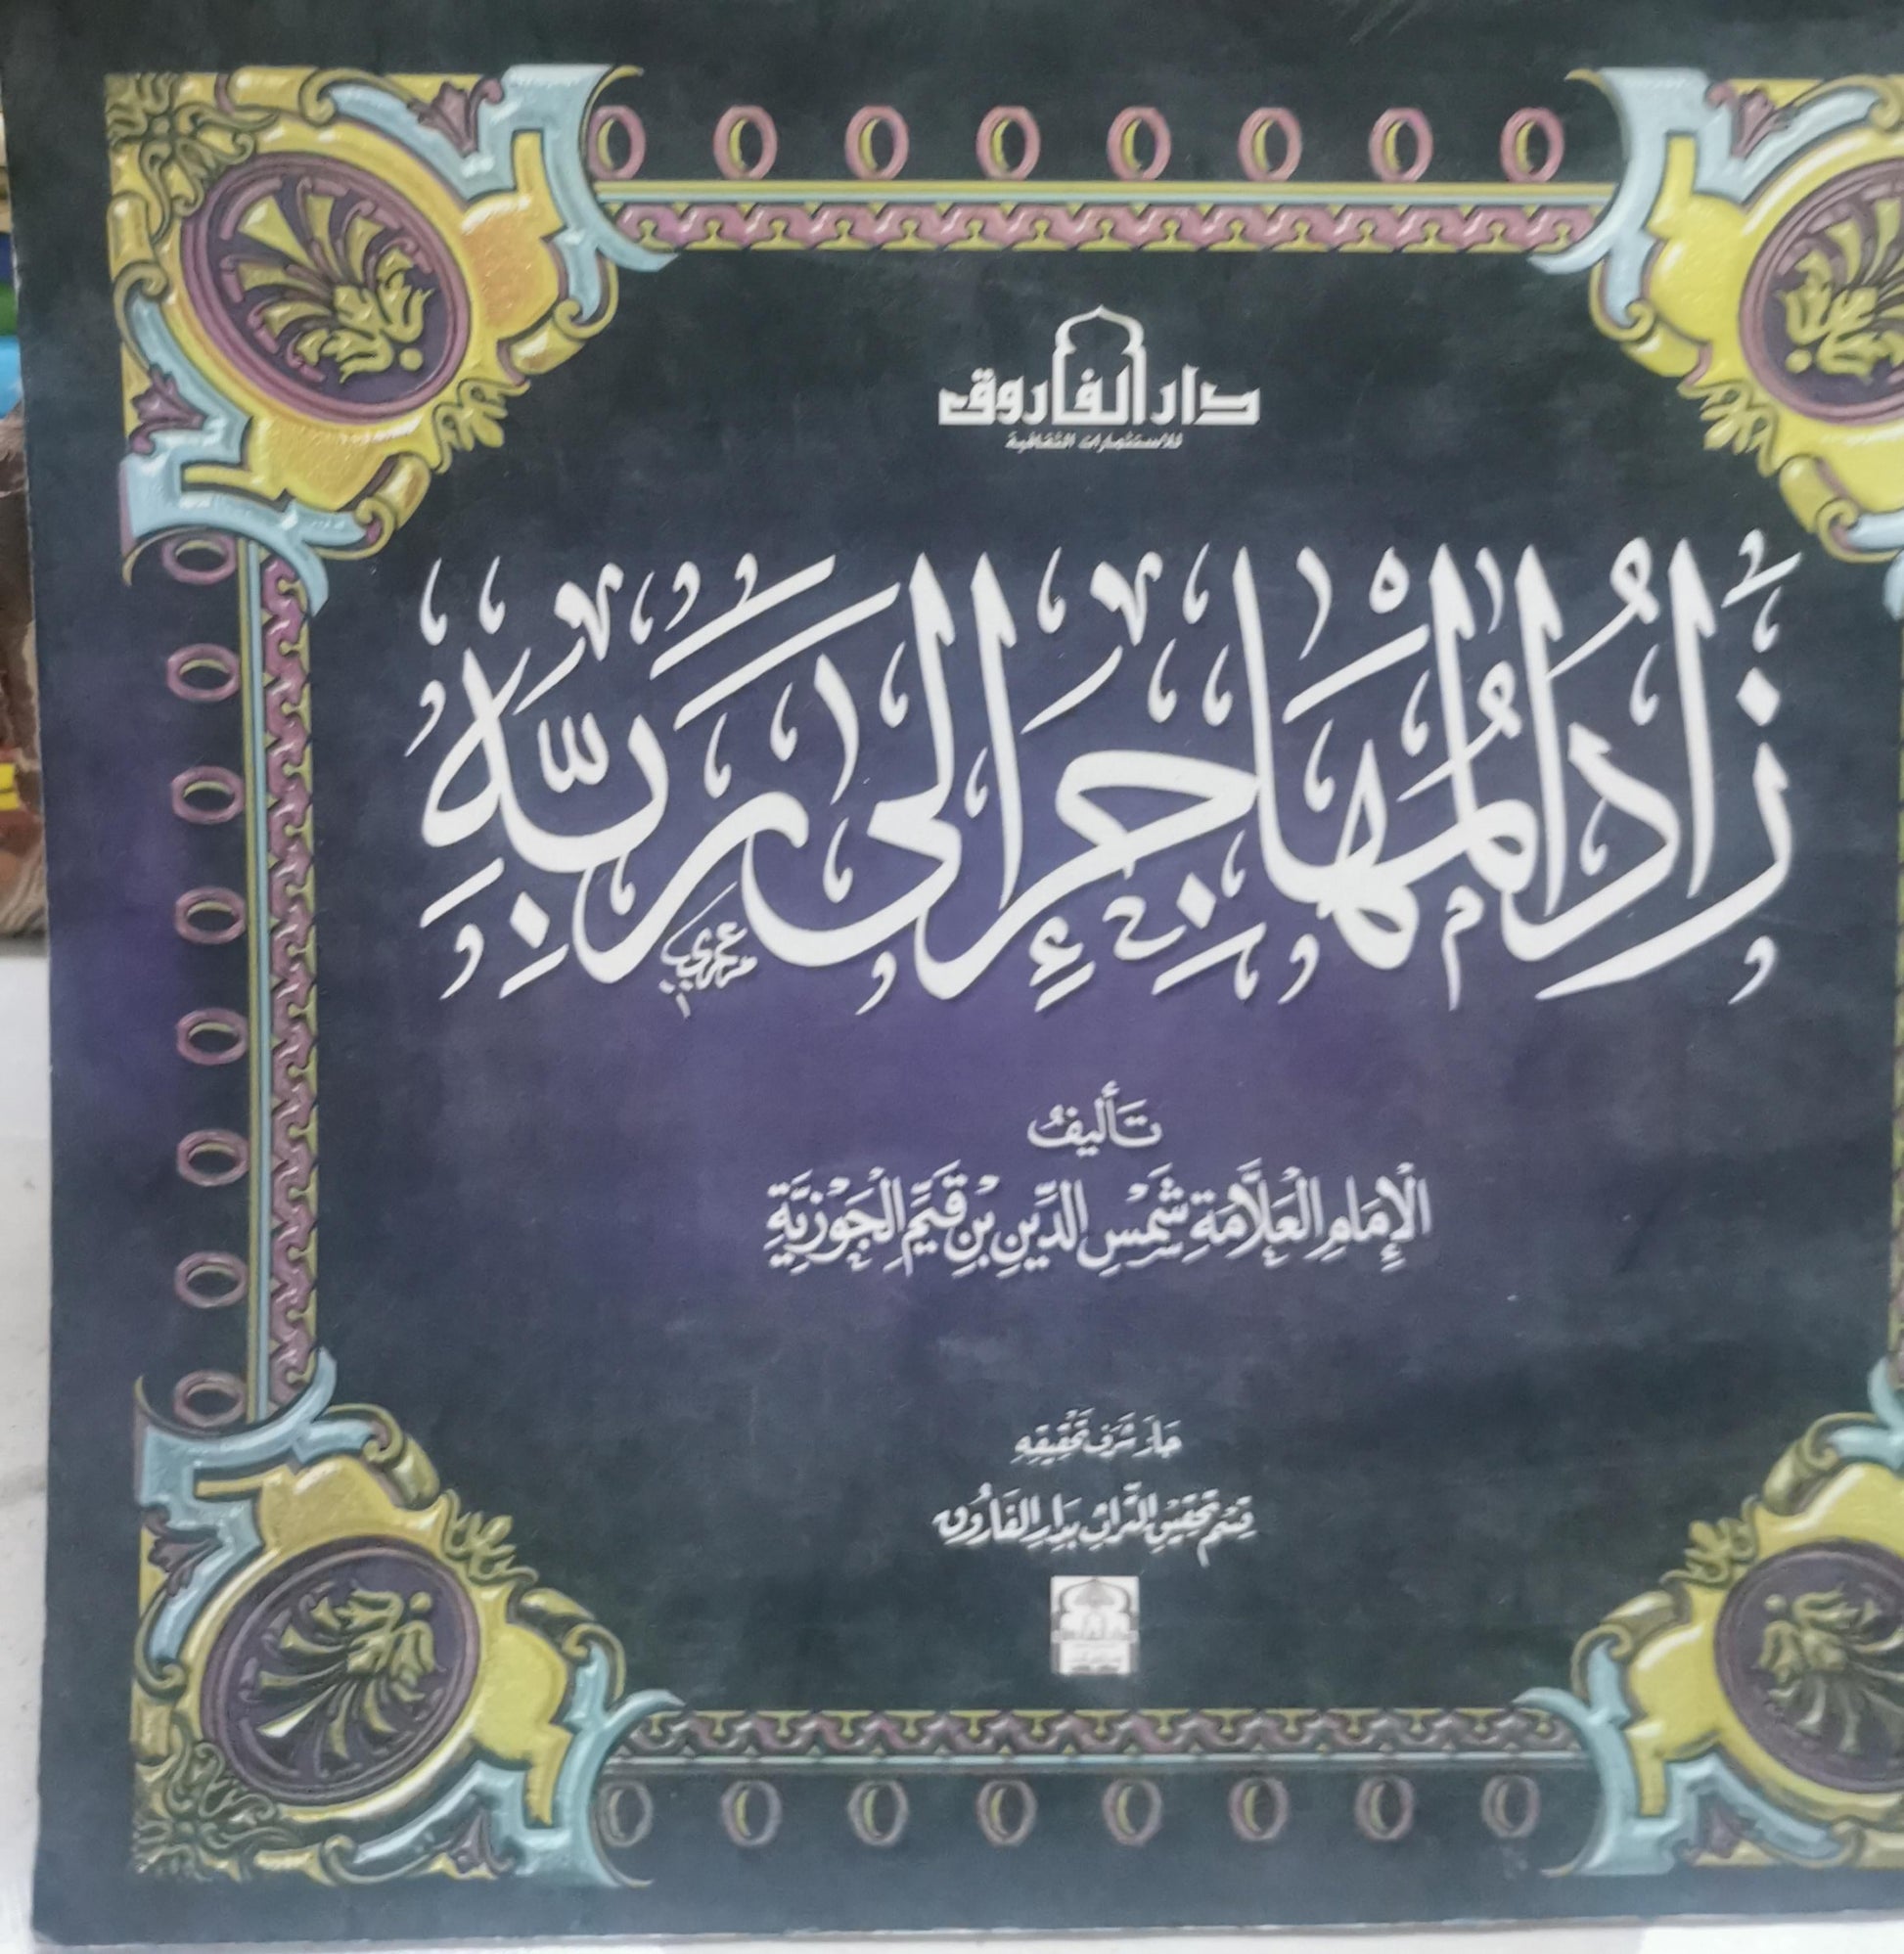 دار الفاروق
للاستثمارات الثقافية
زَادُ المُهَاجِرِ إِلى رَبِّهِ
تَأليفُ
الْإِمَامِ الْعَلَّامَةِ شَمْسِ الدِّينِ بْنِ قَيِّمِ الْجَوْزِيَّةِ
حَازَ شَرَف تَحْقِيقِهِ
قِسْم تَحْقِيقِ التُّرَاثِ بِدَارِ الفَارُوق